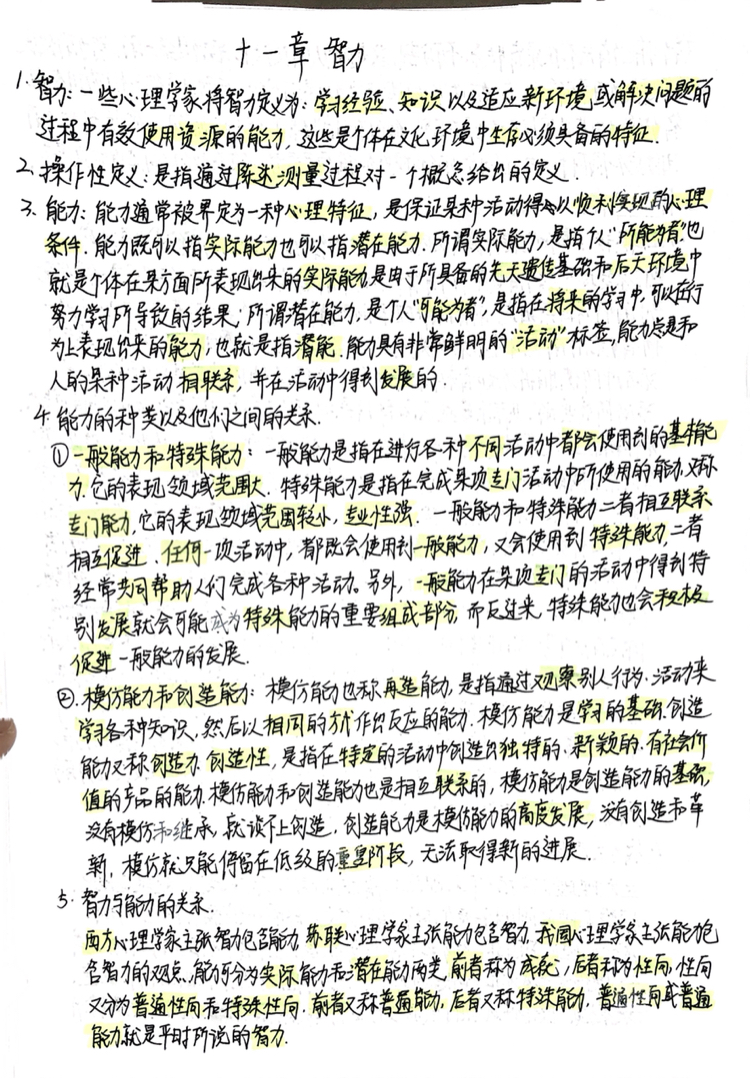 十一章 智力
1. 智力：一些心理学家将智力定义为：学习经验、知识以及适应新环境或解决问题的
过程中有效使用资源的能力，这些是个体在文化环境中生存必须具备的特征.
2. 操作性定义：是指通过陈述测量过程对一个概念给出的定义.
3. 能力：能力通常被界定为一种心理特征，是保证某种活动得以顺利实现的心理
条件. 能力既可以指实际能力也可以指潜在能力. 所谓实际能力，是指个人“所能为者”也
就是个体在某方面所表现出来的实际能力是由于所具备的先天遗传基础和后天环境中
努力学习所导致的结果；所谓潜在能力，是个人“可能为者”，是指在将来的学习中，可以在行
为上表现出来的能力，也就是指潜能. 能力具有非常鲜明的“活动”标签，能力总是和
人的某种活动相联系，并在活动中得到发展的.
4. 能力的种类以及他们之间的关系.
① 一般能力和特殊能力：一般能力是指在进行各种不同活动中都会使用到的基本能
力. 它的表现领域范围大. 特殊能力是指在完成某项专门活动中所使用的能力. 又称
专门能力，它的表现领域范围较小，专业性强. 一般能力和特殊能力二者相互联系
相互促进. 任何一项活动中，都既会使用到一般能力，又会使用到特殊能力，二者
经常共同帮助人们完成各种活动。另外，一般能力在某项专门的活动中得到特
别发展就会可能成为特殊能力的重要组成部分，而反过来，特殊能力也会积极
促进一般能力的发展.
②. 模仿能力和创造能力：模仿能力也称再造能力，是指通过观察别人行为、活动来
学习各种知识，然后以相同的方式作出反应的能力. 模仿能力是学习的基础. 创造
能力又称创造力. 创造性，是指在特定的活动中创造出独特的、新颖的、有社会价
值的产品的能力. 模仿能力和创造能力也是相互联系的，模仿能力是创造能力的基础，
没有模仿和继承，就谈不上创造，创造能力是模仿能力的高度发展，没有创造和革
新，模仿就只能停留在低级的重复阶段，无法取得新的进展.
5. 智力与能力的关系.
西方心理学家主张智力包含能力，苏联心理学家主张能力包含智力，我国心理学家主张能力包
含智力的观点，能力可分为实际能力和潜在能力两类，前者称为成就，后者称为性向，性向
又分为普通性向和特殊性向. 前者又称普通能力，后者又称特殊能力，普通性向或普通
能力就是平时所说的智力.